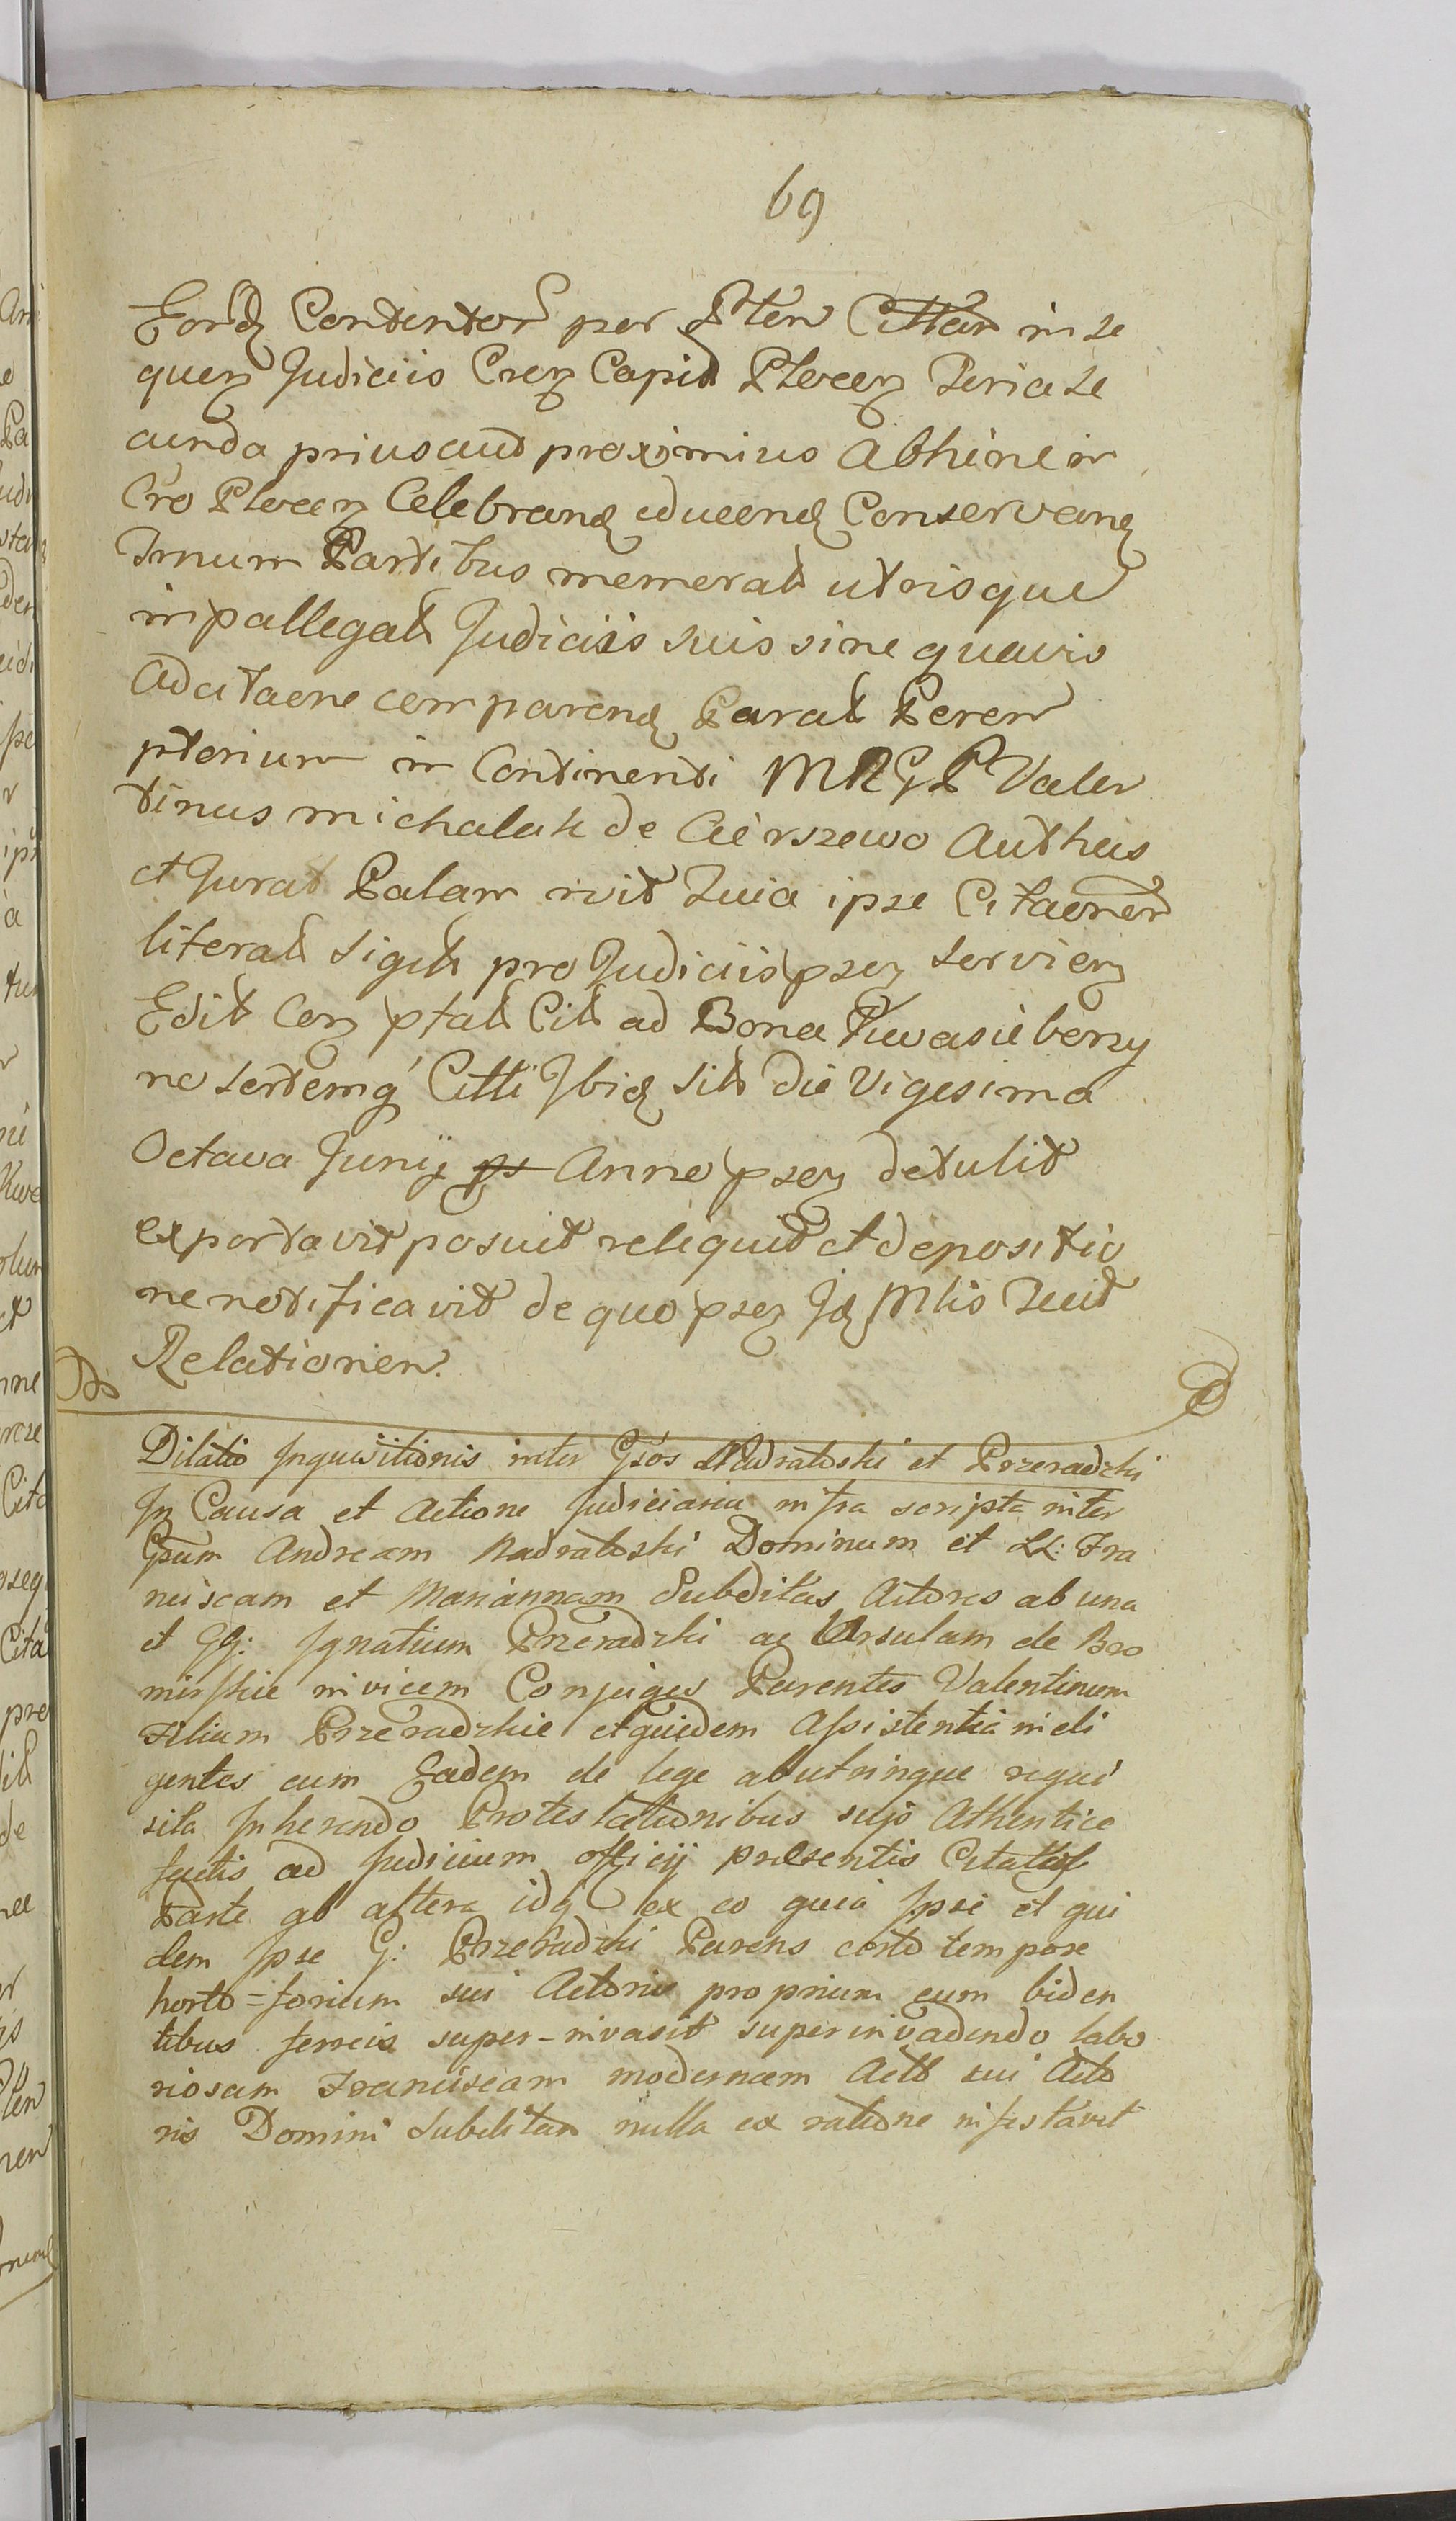 69
Eord Contentor per Pten Cittan in se
quen Judiciis Cren Capit Plocen Feria se
cunda prius aut proximius Abhinc in
Cro Plocen Celebrand educend Conservand
Tmum Partibus memorat utrisque
in pallegat Judiciis suis sine quavis
Adcitaone comparend Parat Perem
ptorium in Continenti MRGP Valen
tinus michalak de Cierszewo Authcus
et Jurat Palam rvit Quia ipse Citaonem
literat Sigilt pro Judiciis psen servien
Edit Con ptat Cit ad Bona
no sortemq Citti Ibid Sit die Vigesima
Octava Junij Anno psen detulit
exportavit posuit reliquit et depositio
ne notificavit de quo psen Jd Mlis fecit
Relationem.
Dilatio Inquisitionis inter Gsos Nadratoski et Przeradzki
In Causa et Actione Judiciaria infra scripta inter
Gsum Andream Nadratoski Dominum et LL: Fra
nciscam et Mariannam Subditas Actores ab una
et GG: Ignatium Przeradzki ac Ursulam de Bro
mirskie invicem Conjuges Parentes Valentinum
Filium Przeradzkie et quidem Assistentia indi
gentes cum Eadem de lege ab utrinque requi
sita Inherendo Protestationibus suis Athentice
factis ad Judicium officij presentis Citatos
Parte ab altera idq ex eo quia Ipsi et qui
dem Ipse G: Przeradzki Parens certo tempore
horto=forium sui Actoris proprium cum biden
tibus ferreis super-invasit superinvadendo labo
riosam Franciscam modernam Act sui Acto
ris Domini Subditam nulla ex ratione infestavit